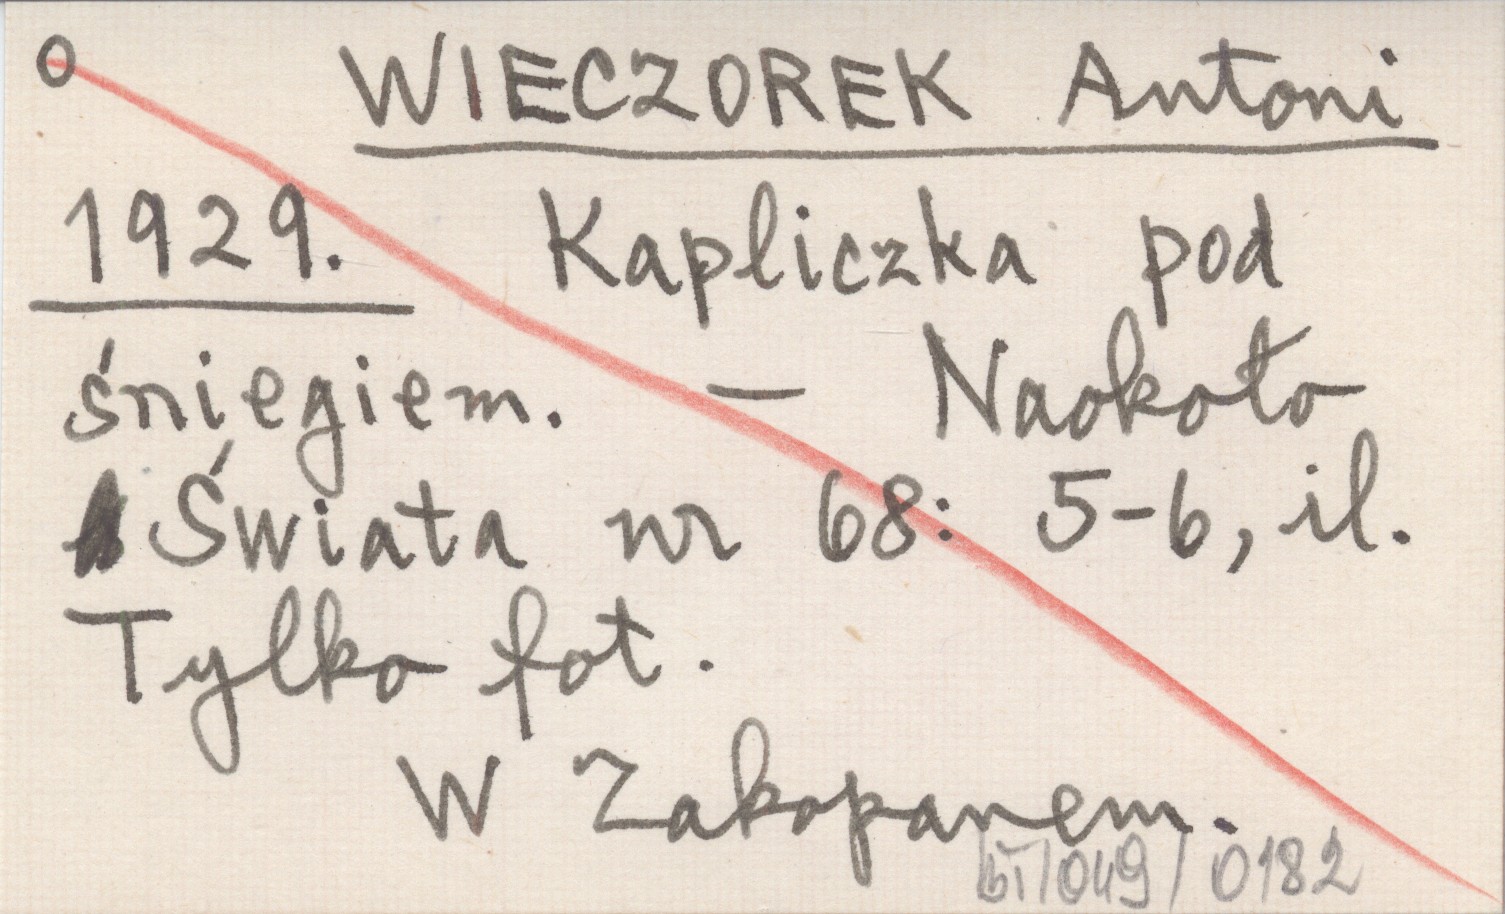 O WIECZOREK Antoni
1929. Kapliczka pod
śniegiem. — Naokoło
Świata nr 68: 5-6, il.
Tylko fot.
W Zakopanem.
bt/049/0182